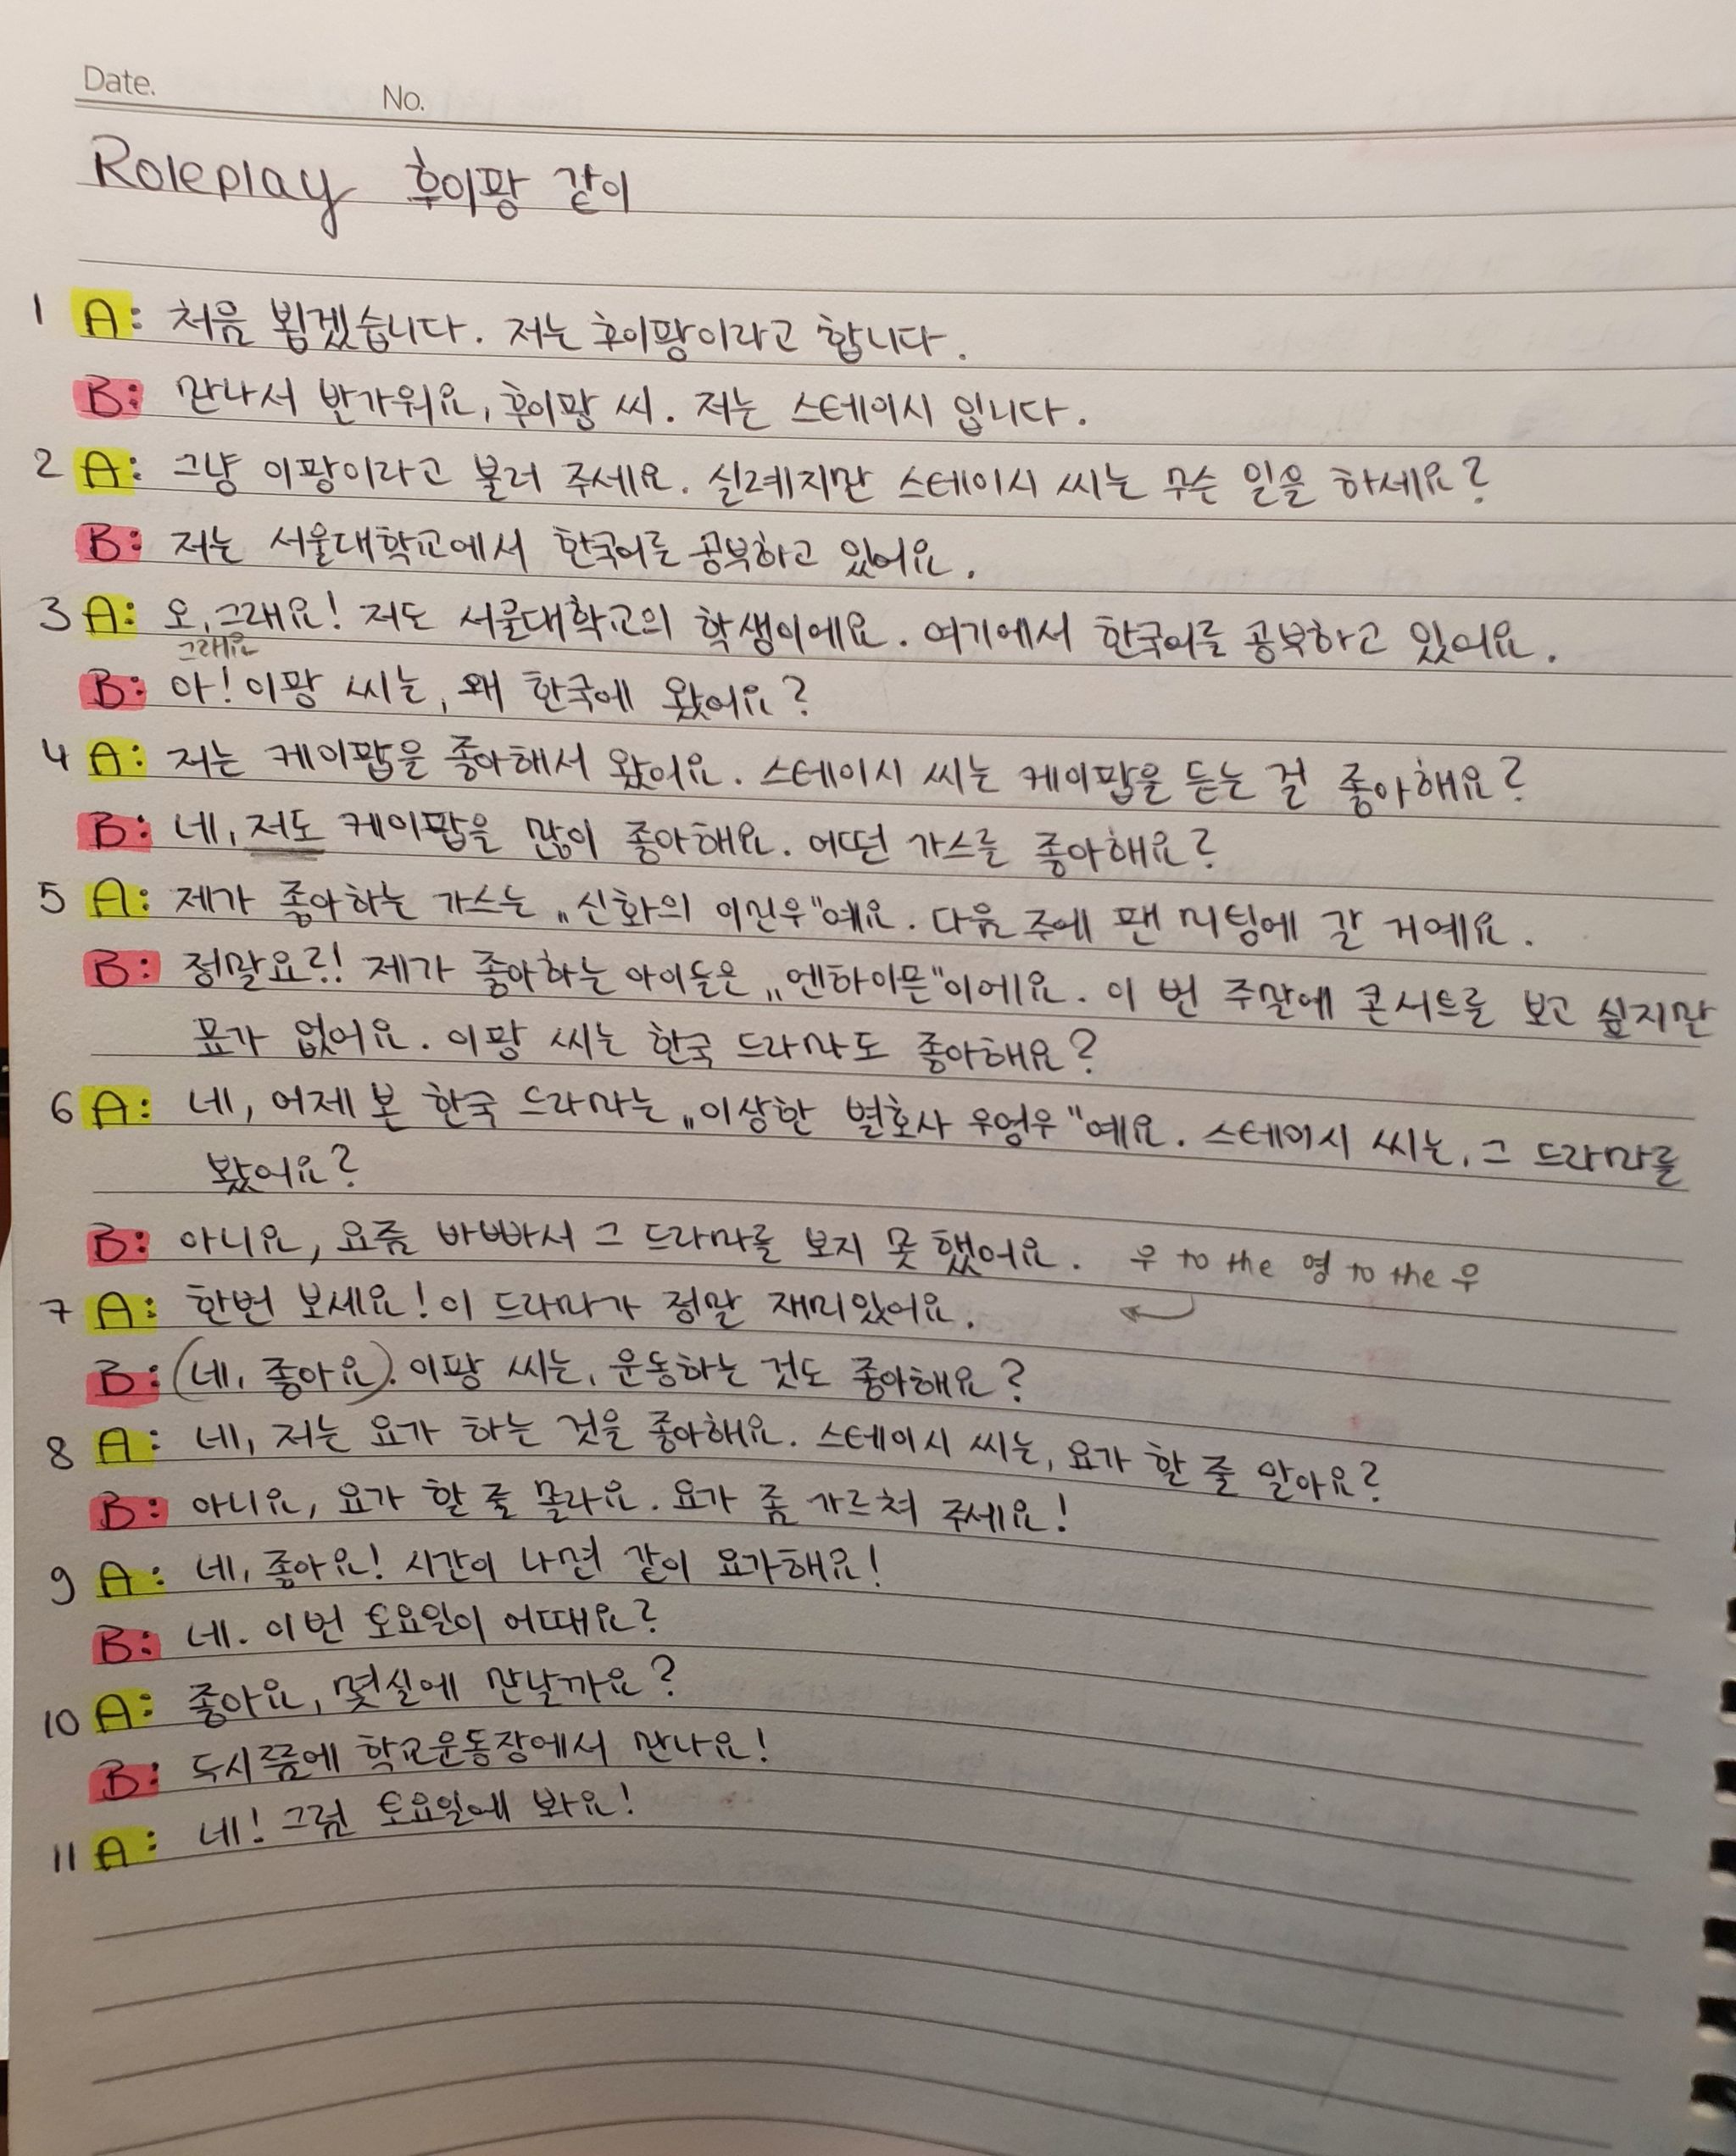 Date.
No.
Roleplay 후이팡 같이
1 A: 처음 뵙겠습니다. 저는 후이팡이라고 합니다.
B: 만나서 반가워요, 후이팡 씨. 저는 스테이시 입니다.
2 A: 그냥 이팡이라고 불러 주세요. 실례지만 스테이시 씨는 무슨 일을 하세요?
B: 저는 서울대학교에서 한국어를 공부하고 있어요.
3 A: 오, 그래요! 저도 서울대학교의 학생이에요. 여기에서 한국어를 공부하고 있어요.
그래요
B: 아! 이팡 씨는, 왜 한국에 왔어요?
4 A: 저는 케이팝을 좋아해서 왔어요. 스테이시 씨는 케이팝을 듣는 걸 좋아해요?
B: 네, 저도 케이팝을 많이 좋아해요. 어떤 가스를 좋아해요?
5 A: 제가 좋아하는 가스는 „신화의 이민우"예요. 다음 주에 팬 미팅에 갈 거예요.
B: 정말요?! 제가 좋아하는 아이돌은 „엔하이픈"이에요. 이 번 주말에 콘서트를 보고 싶지만
표가 없어요. 이팡 씨는 한국 드라마도 좋아해요?
6 A: 네, 어제 본 한국 드라마는 „이상한 별호사 우영우"예요. 스테이시 씨는, 그 드라마를
봤어요?
B: 아니요, 요즘 바빠서 그 드라마를 보지 못 했어요. 우 to the 영 to the 우
7 A: 한번 보세요! 이 드라마가 정말 재미있어요.
B: (네, 좋아요). 이팡 씨는, 운동하는 것도 좋아해요?
8 A: 네, 저는 요가 하는 것을 좋아해요. 스테이시 씨는, 요가 할 줄 알아요?
B: 아니요, 요가 할 줄 몰라요. 요가 좀 가르쳐 주세요!
9 A: 네, 좋아요! 시간이 나면 같이 요가해요!
B: 네. 이번 토요일이 어때요?
10 A: 좋아요, 몇실에 만날까요?
B: 두시쯤에 학교운동장에서 만나요!
11 A: 네! 그럼 토요일에 봐요!